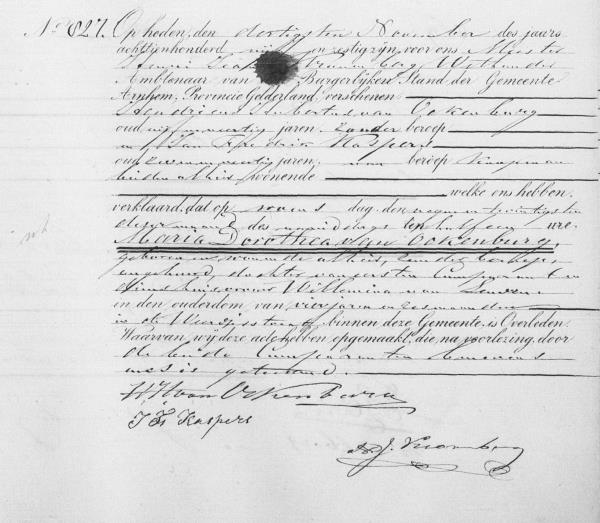 No 827. Op heden, den dertigsten November des jaars
achttienhonderd vijf en zestig zijn, voor ons Meester
Ambtenaar van den Burgerlijken Stand der Gemeente
Arnhem, Provincie Gelderland, verschenen
Hendrikus Hubertus van Ockenburg
oud vijf en veertig jaren, zonder beroep
en Jan Frederik Kaspers
oud twee en veertig jaren, van beroep koopman
beiden alhier wonende
welke ons hebben
verklaard, dat op dag, den negen en twintigsten
dezer maand des middags ten half een ure
Maria Dorothea van Ockenburg,
geboren en wonende alhier, zonder beroep,
ongehuwd, dochter van eersten Comparant en
Willemina van
in den ouderdom van vier jaren en zes maanden
in de binnen deze Gemeente, is Overleden.
Waarvan wij deze acte hebben opgemaakt, die, na voorlezing, door
de beide Comparanten benevens
ons is geteekend.
H. H. van Ockenburg
J. Fs Kaspers